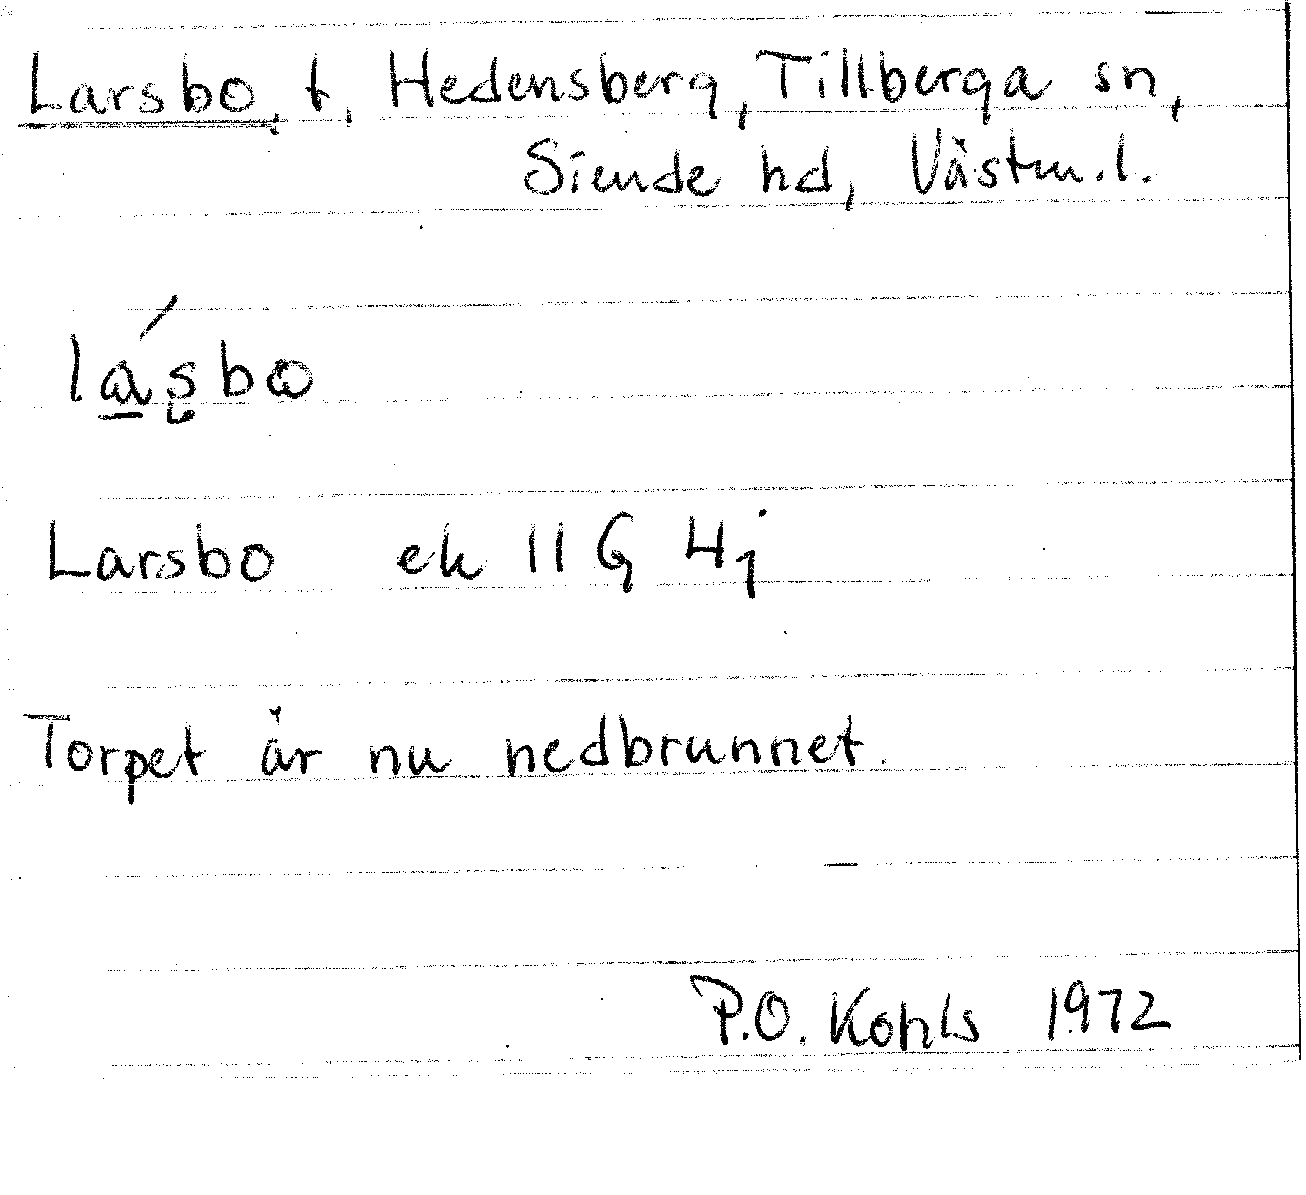 Larsbo, t, Hedensberg, Tillberga sn,
Siende hd, Västm.l.
lá̱ʂbo
Larsbo ek 11 G 4j
Torpet är nu nedbrunnet.
P.O. Kohls 1972